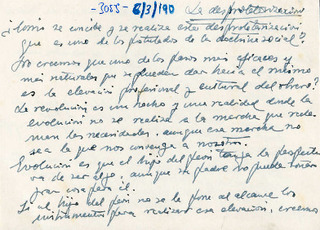 -3055- 6/3/190 La desproletarización
¿Como se concibe y se realiza esta desproletarización
que es uno de los postulados de la doctrina social?
No creemos que uno de los pasos mas eficaces y
mas naturales que se pueden dar hacia el mismo
es la elevación profesional y cultural del obrero?
La revolución es un hecho y una realidad donde la
evolución no se realiza a la marcha que recla-
man las necesidades, aunque esa marcha no
sea la que nos convenga a nosotros.
Evolución es que el hijo del peón tenga la perspecti-
va de ser algo, aunque su padre no puede
gran cosa para él.
Si al hijo del peón no se le pone al alcance los
instrumentos para realizar esa elevación, creemos